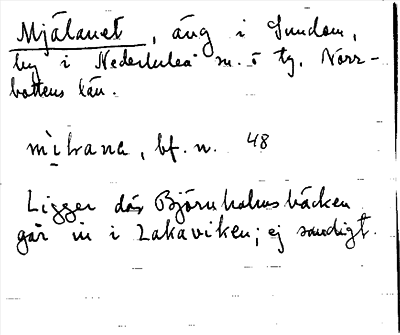 Mjälanet, äng i Sundom,
by i Nederluleå sn. o tg. Norr-
bottens län.
bf. n. 48
Ligger där Björnholmsbäcken
går in i Lakaviken; ej sandigt.